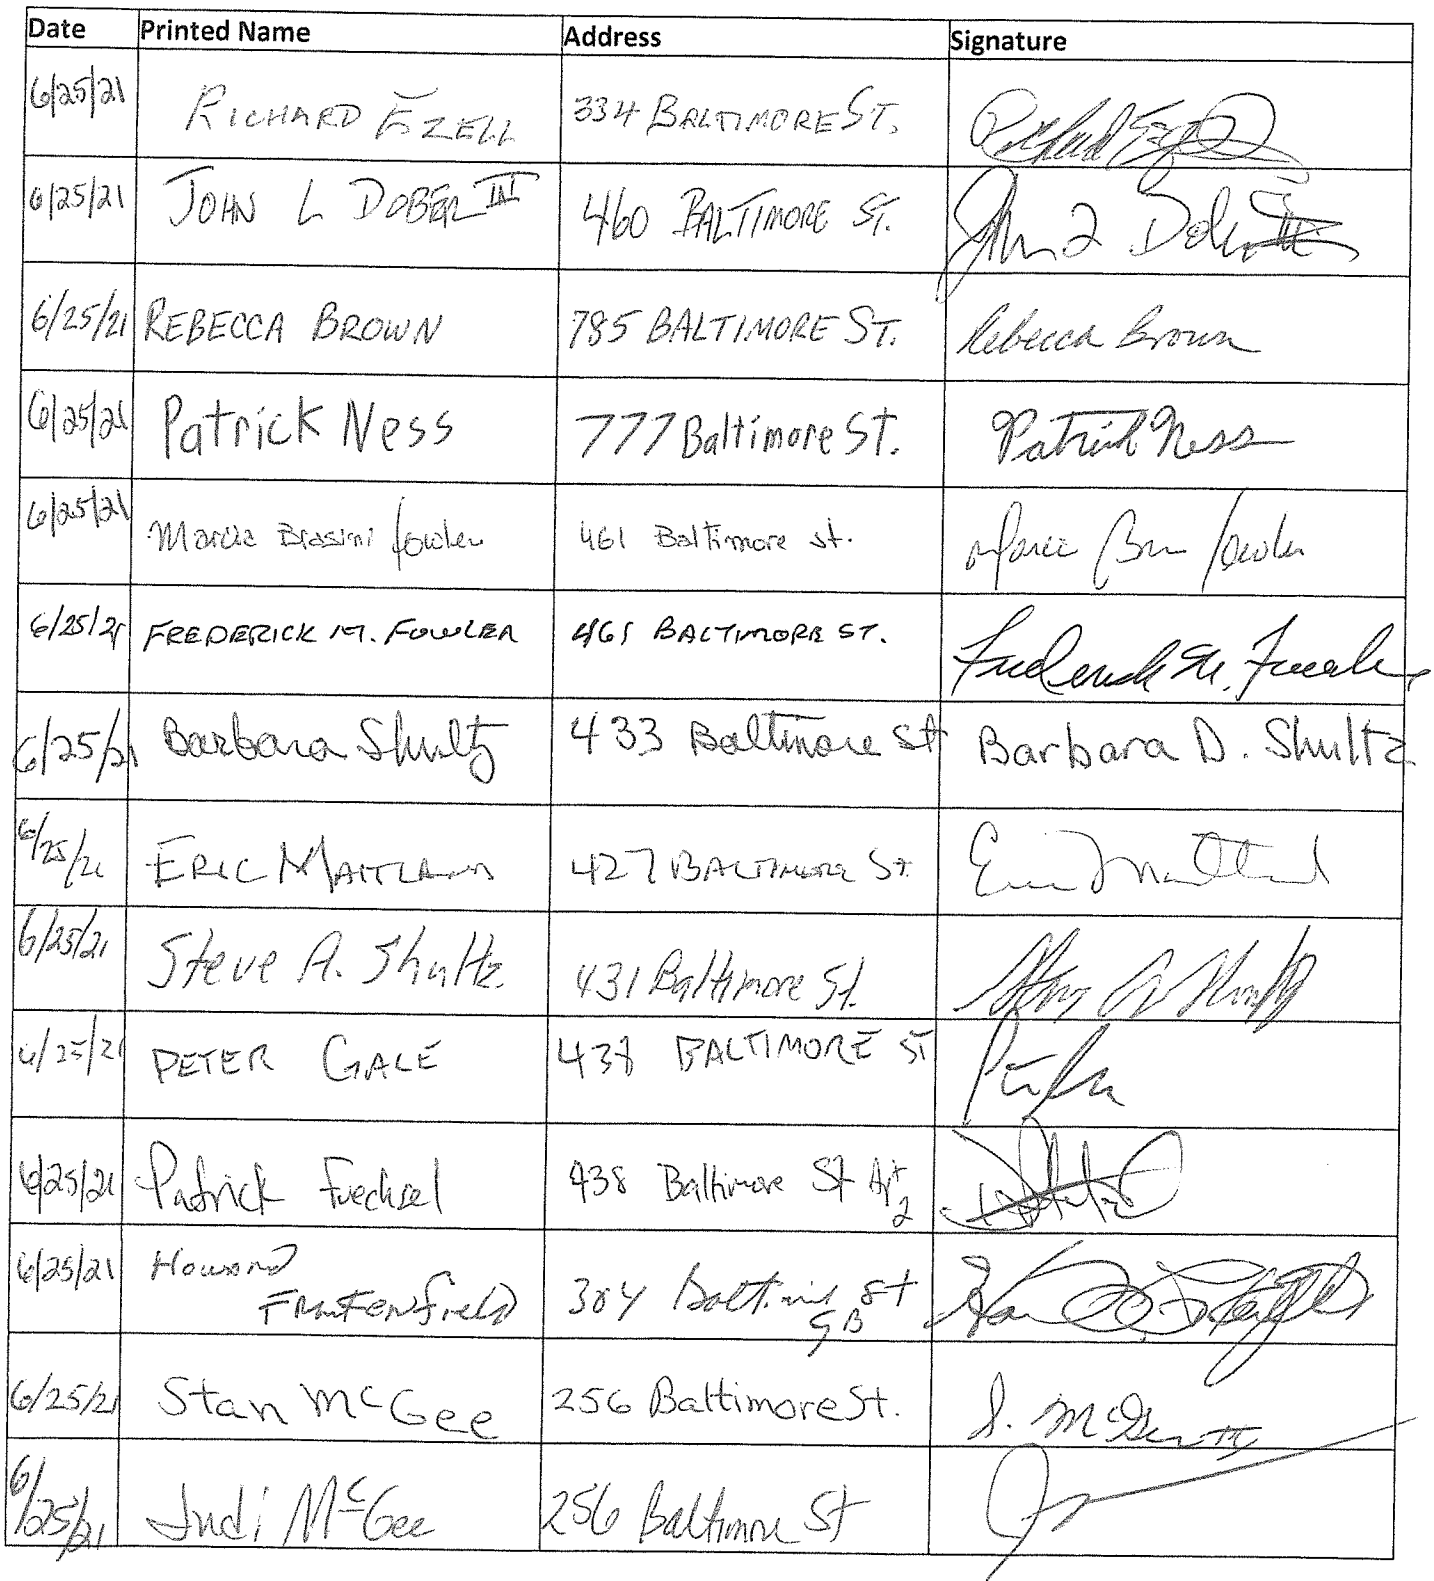 Date Printed Name Address Signature
6/25/21 RICHARD EZELL 334 BALTIMORE ST.
6/25/21 JOHN L DOBER III 460 BALTIMORE ST. John L Dober III
6/25/21 REBECCA BROWN 785 BALTIMORE ST. Rebecca Brown
6/25/21 Patrick Ness 777 Baltimore St. Patrick Ness
6/25/21 Marcia Brasini fowler 461 Baltimore st.
6/25/21 FREDERICK M. FOWLER 461 BALTIMORE ST. Frederick M. Fowler
6/25/21 Barbara Shultz 433 Baltimore St Barbara D. Shultz
6/25/21 ERIC MAITLAND 427 BALTIMORE ST. Eric Maitland
6/25/21 Steve A. Shultz 431 Baltimore St.
6/25/21 PETER GALE 438 BALTIMORE ST
6/25/21 Patrick Fuechsel 438 Baltimore St Apt
2
6/25/21 Howard
304 Baltimore St
GB
6/25/21 Stan McGee 256 Baltimore St. S. McGee III
6/25/21 Judi McGee 256 Baltimore St